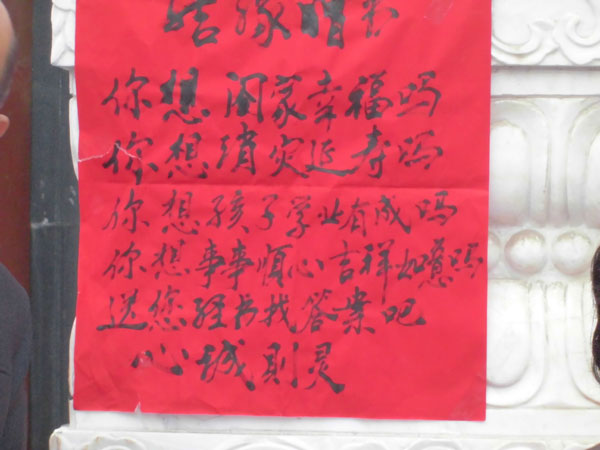 结缘赠书
你想阁家幸福吗
你想消灾延寿吗
你想孩子学业有成吗
你想事事順心吉祥如意吗
送您经书找答案吧
心诚則灵